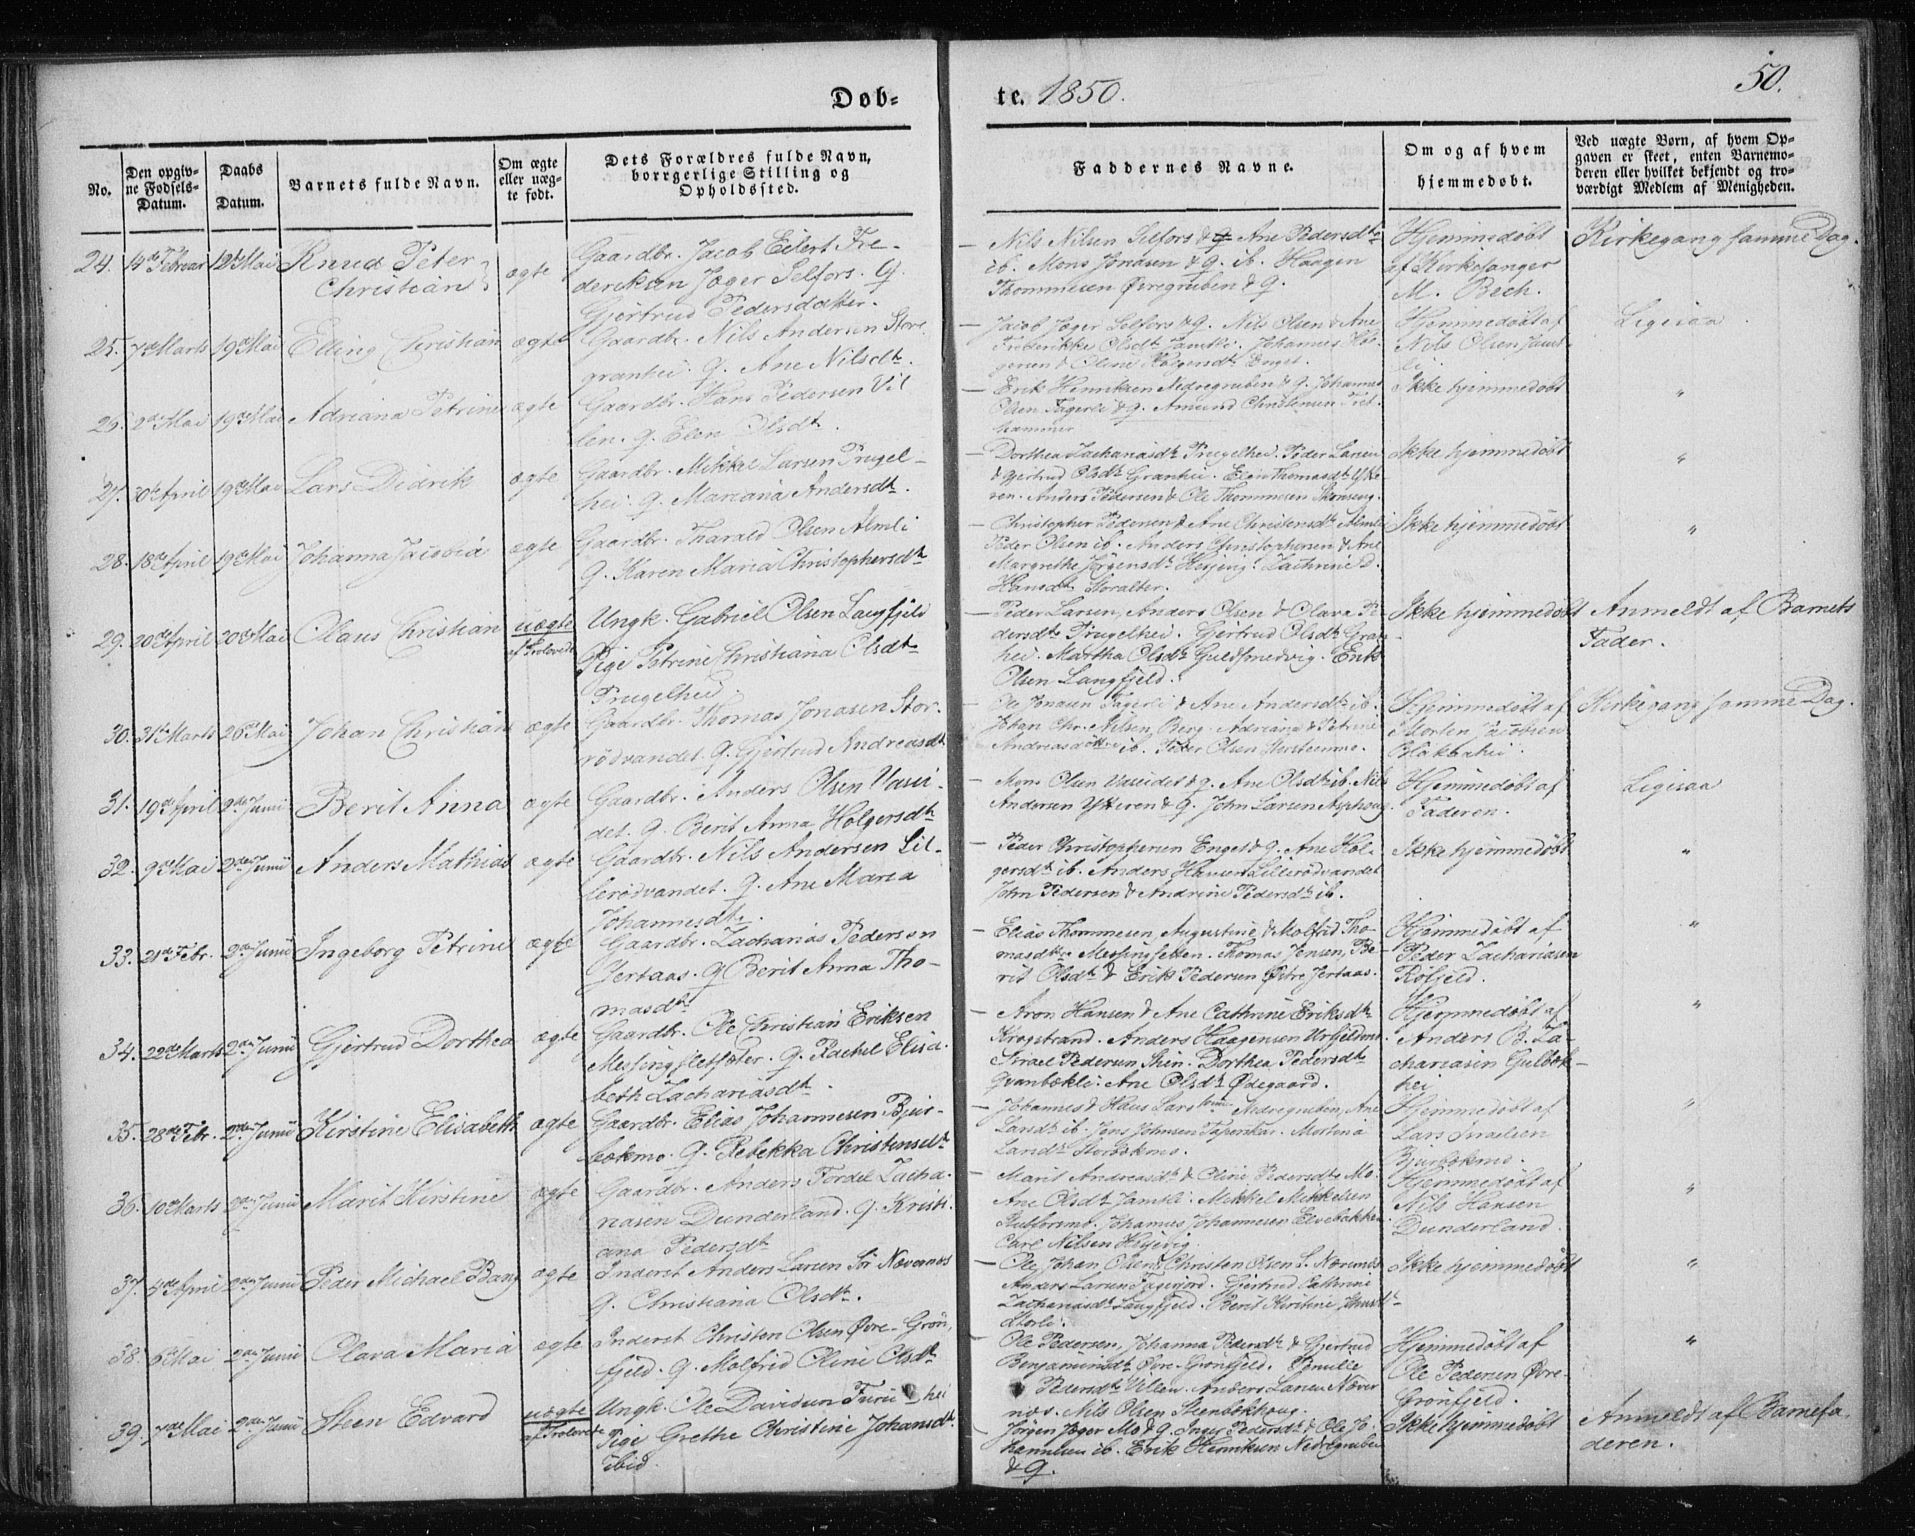 50.
Døb- te. 1850.
No.
Den opgiv-
ne Fødsels-
Datum.
Daabs
Datum.
Barnets fulde Navn.
Om ægte
eller uæg-
te født.
Dets Forældres fulde Navn,
borrgerlige Stilling og
Opholdssted.
Faddernes Navne.
Om og af hvem
hjemmedøbt.
Ved uægte Børn, af hvem Op-
gaven er skeet, enten Barnemo-
deren eller hvilket bekjendt og tro-
værdigt Medlem af Menigheden.
24. 14de Februar 12te Mai Knud Peter
Christian
ægte
Gaardbr. Jacob Eilert Fre-
deriksen Jæger Selfors. Q.
Gjertrud Pedersdatter.
Nils Nilsen Selfors & Q Ane Pedersdtr
ib. Mons Jonasen & Q. ib. Haagen
Thommesen Øvregruben & Q.
Hjemmedøbt
af Kirkesanger
M. Bech.
Kirkegang samme Dag.
25. 7de Marts 19de Mai Elling Christian ægte
Gaardbr. Nils Andersen Store
granhei. Q. Ane Nilsdtr.
Jacob Jæger Selfors & Q. Nils Olsen & Ane
Frederikke Olsdtr Jamtli. Johannes Hol-
gersen & Oline Holgersdtr Enget.
Hjemmedøbt af
Nils Olsen Jamt-
li
Ligesaa
26. 2de Mai 19de Mai Adriana Petrine ægte
Gaardbr. Hans Pedersen Vil
len. Q. Elen Olsdtr.
Erik Henriksen Nedregruben & Q. Johannes
Olsen Fagerli & Q. Amund Christensen
hammer
Ikke hjemmedøbt
"
27. April 19de Mai Lars Didrik ægte
Gaardbr. Mikkel Larsen Prugel-
hei. Q. Mariana Andersdtr.
Dorthea Zachariasdtr Prugelhei. Peder Larsen
& Gjertrud Olsdtr Granhei. Elen Thomasdtr Ytte
ren. Anders Pedersen & Ole Thommesen Skonseng.
Ikke hjemmedøbt
"
28. 18de April 19de Mai Johanna Jacobia ægte
Gaardbr. Tharald Olsen Almli
Q. Karen Maria Christophersdtr
Christopher Pedersen & Ane Christensdtr Almli
Peder Olsen ib. Anders Christophersen & Ane
Margrethe Jørgensdtr Hesjevig. Cathrine D.
Hansdtr Storalter.
Ikke hjemmedøbt
"
29. 20de April 20de Mai Olaus Christian uægte
af Trolovede
Ungk. Gabriel Olsen Langfjeld
Pige Petrine Christiana Olsdtr
Prugelhei.
Peder Larsen, Anders Olsen & Olava Pe
dersdtr Prugelhei. Gjertrud Olsdtr Gran
hei. Martha Olsdtr Guldsmedvig. Erik
Olsen Langfjeld.
Ikke hjemmedøbt
Anmeldt af Barnets
Fader.
30. 31te Marts 26de Mai Johan Christian ægte
Gaardbr. Thomas Jonasen Stor-
rødvandet. Q. Gjertrud Andreasdtr
Ole Jonasen Fagerli & Ane Andersdtr ib.
Johan Chr. Nilsen Berg. Adriana & Petrine
Andreasdøttre ib. Peder Olsen
Hjemmedøbt af
Morten Jacobsen
Blakbakhei.
Kirkegang samme Dag.
31. 19de April 2de Junii Berit Anna ægte
Gaardbr. Anders Olsen Vasei-
det. Q. Berit Anna Holgersdtr
Mons Olsen Vaseidet & Q. Ane Olsdtr ib. Nils
Andersen Ytteren & Q. John Larsen Asphoug.
Hjemmedøbt af
Faderen.
Ligesaa
32. 9de Mai 2den Junii Anders Mathias ægte
Gaardbr. Nils Andersen Lil-
lerødvandet. Q. Ane Maria
Johannesdtr.
Peder Christophersen Enget & Q. Ane Hol-
gersdtr ib. Anders Hansen Lillerødvandet
John Pedersen & Andrine Pedersdtr ib.
Ikke hjemmedøbt
"
33. 21de Febr. 2de Junii Ingeborg Petrine ægte
Gaardbr. Zacharias Pedersen
Jertaas. Q Berit Anna Tho-
masdtr
Elias Thommesen, Augustine & Molfrid Tho
masdtre Meslingsletten. Thomas Jensen, Be-
rit Olsdtr & Erik Pedersen Østre Jertaas.
Hjemmedøbt af
Peder Zachariasen
Rolfjeld.
"
34. 22de Marts 2den Junii Gjertrud Dorthea ægte
Gaardbr. Ole Christian Eriksen
Mesling Q. Rachel Elisa-
beth Zachariasdtr.
Aron Hansen & Ane Cathrine Eriksdtr
Krogstrand. Anders Haagensen Urfjeldmo.
Israel Pedersen Dorthea Pedersdtr
Qvanbækli. Ane Olsdtr Ødegaard.
Hjemmedøbt af
Anders B. Za-
chariasen Gulbæk-
hei
"
35. 28de Febr. 2den Junii Kirstine Elisabeth ægte
Gaardbr. Elias Johannesen Bjur-
bækmo. Q. Rebekka Christensdtr
Johannes & Hans Nedregruben, Ane
Larsdtr ib. Jens Johnsen Taperskar. Mortina
Larsdtr Storbækmo.
Hjemmedøbt af
Lars Israelsen
Bjurbækmo.
"
36. 10de Marts 2den Junii Marit Kirstine ægte
Gaardbr. Anders Fordel Zacha-
riasen Dunderland. Q. Kristi-
ana Pedersdtr
Marit Andreasdtr & Oline Pedersdtr Mo.
Ane Olsdtr Jamtli. Mikkel Mikkelsen
Selforsmo. Johannes Johannesen Elvebakken
Carl Nilsen Hesjevig
Hjemmedøbt af
Nils Hansen
Dunderland.
"
37. 5de April 2den Junii Peder Michael Bang ægte
Inderst Anders Larsen Sør Nævernes
Q. Christiana Olsdtr.
Ole Johan Olsen & Christen Olsen S. Nævernes
Anders Larsen Fagerjord. Gjertrud Cathrine
Zachariasdtr Langfjeld. Berit Kirstine
Storli.
Ikke hjemmedøbt
"
38. 6te Mai 2den Junii Olava Maria ægte
Inderst Christen Olsen Øvre-Grøn-
fjeld. Q. Molfrid Oline Olsdtr
Ole Pedersen, Johanna Pedersdtr & Gjertrud
Benjaminsdtr Øvre-Grønfjeld. Pernille
Pedersdtr Villen. Anders Larsen Næver
nes. Nils Olsen Stenbækhoug.
Hjemmedøbt af
Ole Pedersen Øvre-
Grønfjeld.
"
39. 7de Mai 2den Junii Steen Edvard uægte
af Trolovede
Ungk. Ole Davidsen Furuhei
Pige Grethe Christine Johansdtr
ibid.
Jørgen Jæger Mo & Q. Inger Pedersdtr & Ole Jo-
hannesen ib. Erik Henriksen Nedregruben
& Q.
Ikke hjemmedøbt
Anmeldt af Barnefa
deren.